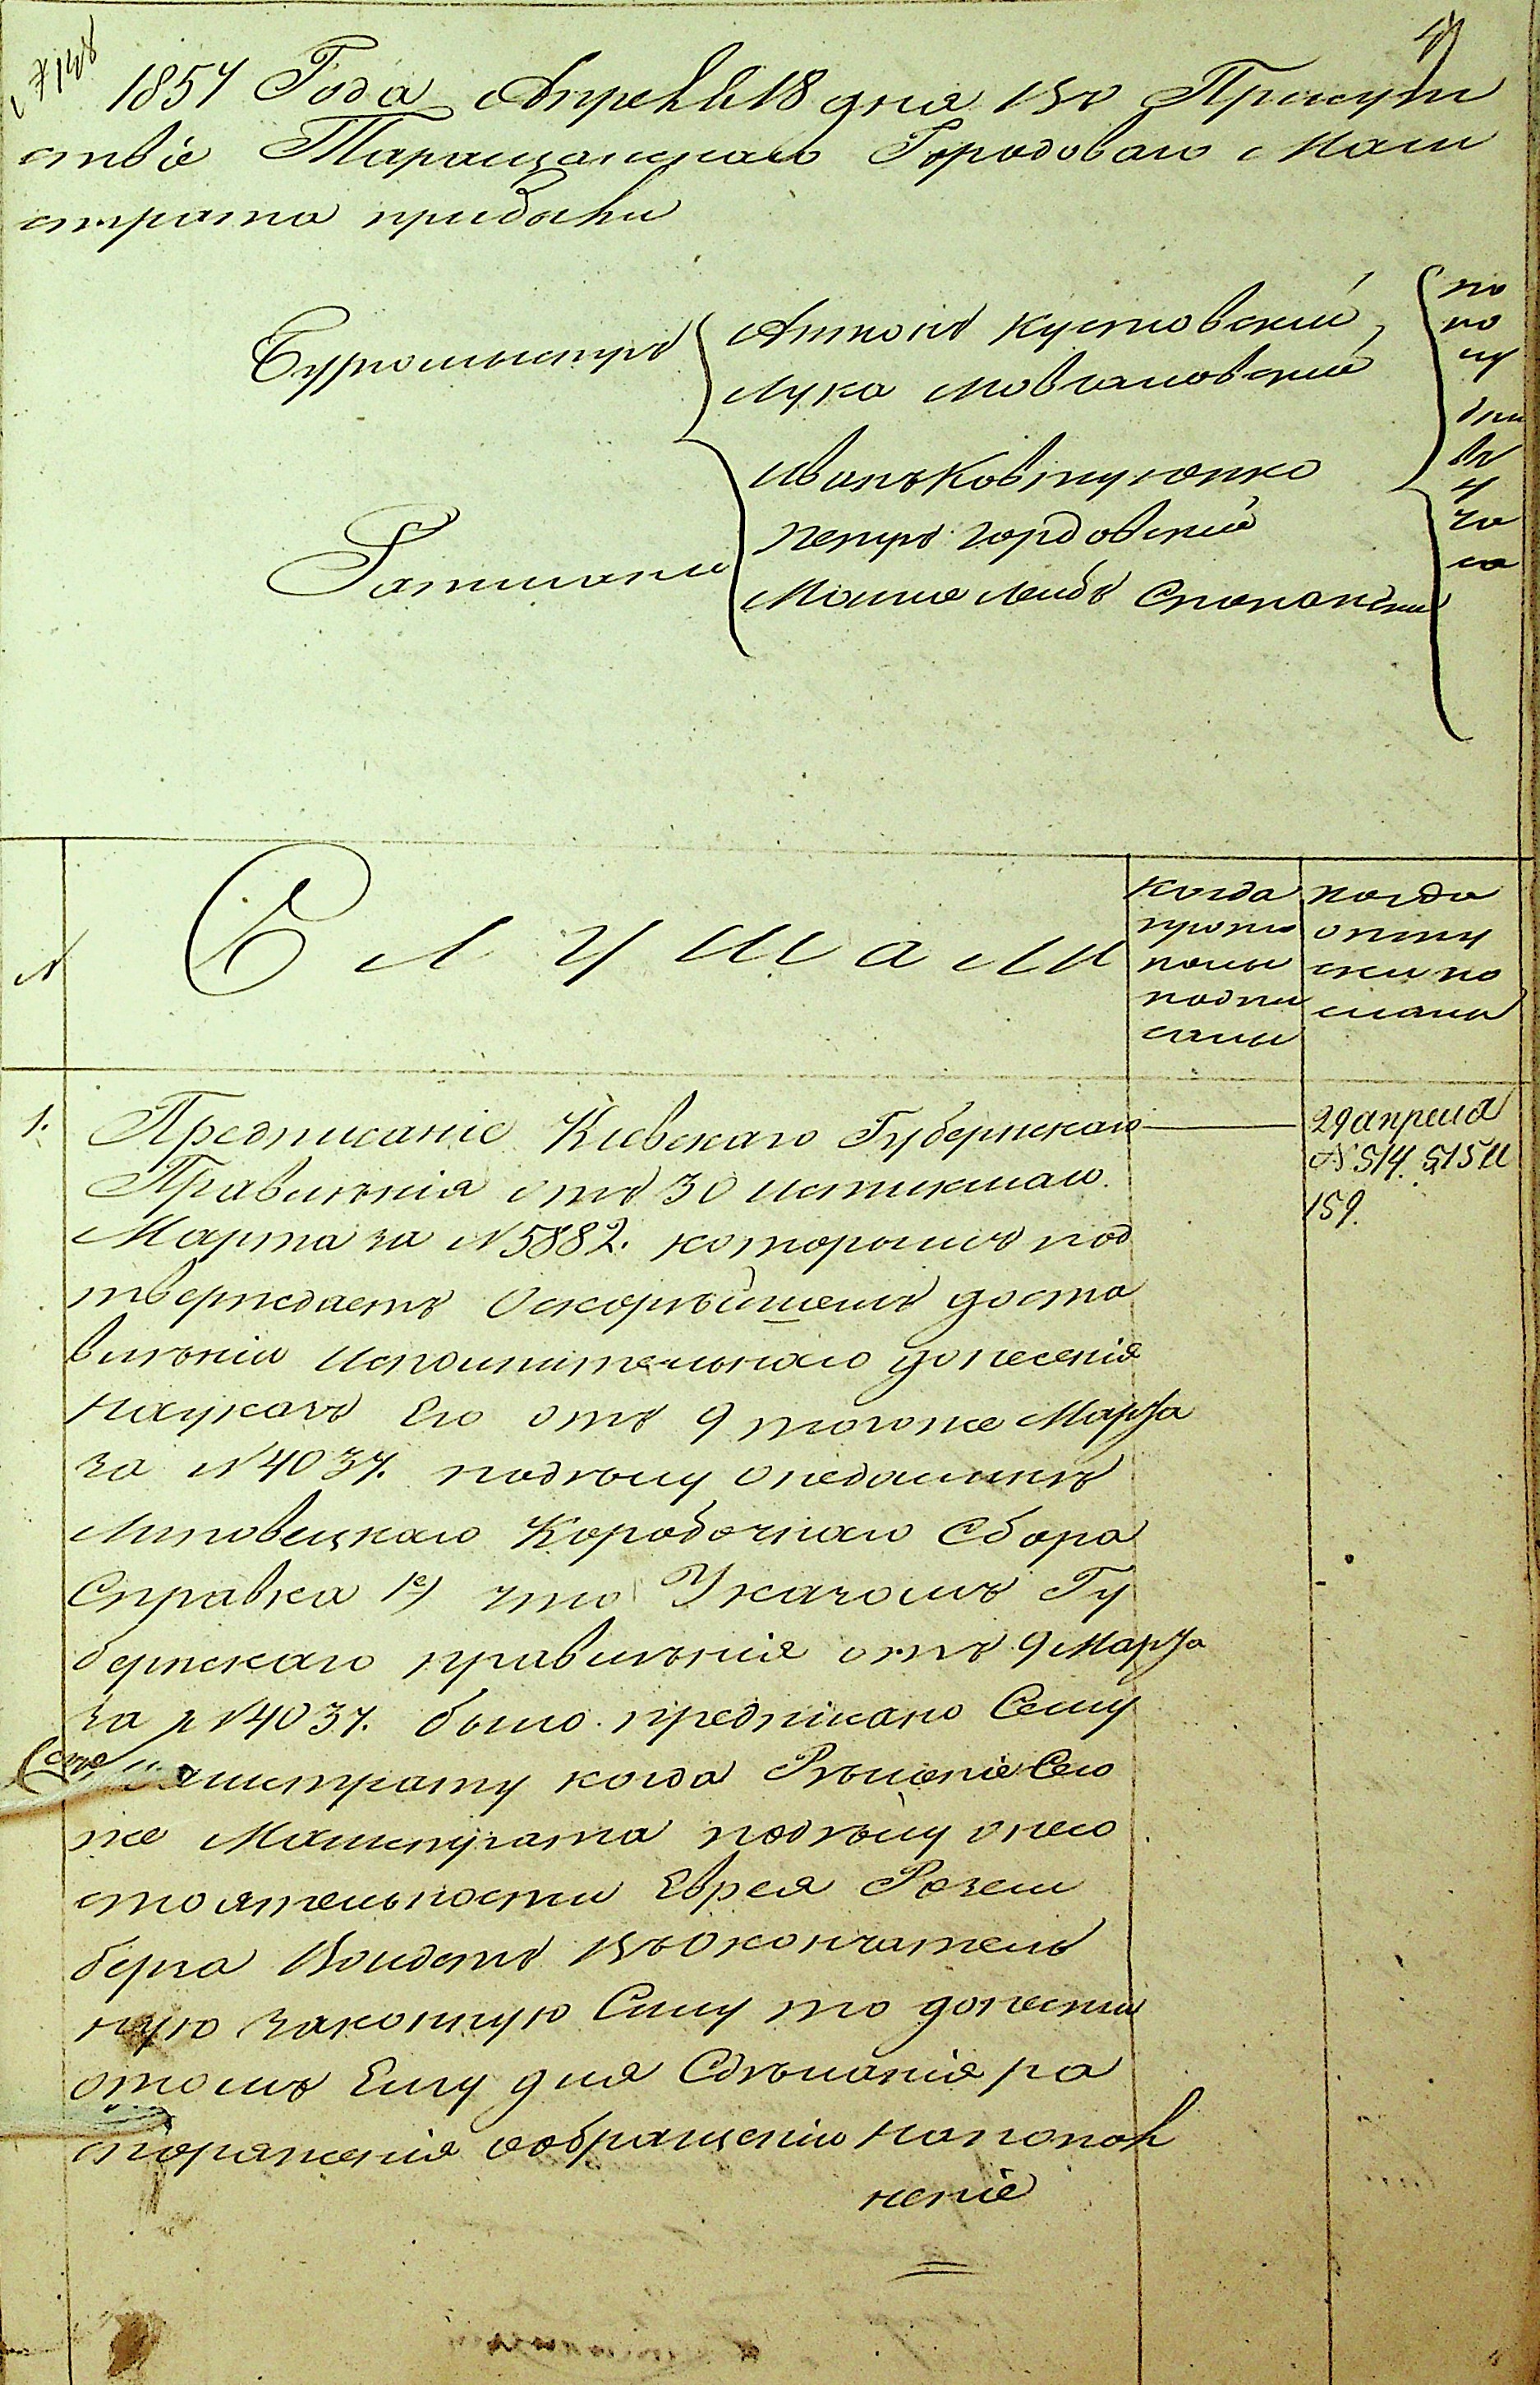 1857 Года Апреля 18 дня Въ Присут
ствіе Таращанскаго Городоваго Маги
страта прибыли
Бургомистръ
Антонъ Кустовскій
Лука Мовчановскій
Ратманы
Иванъ Ковтуненко
Петръ Гордовскій
Мошко Лейбъ
по
по
лу
дни
въ
4
ча
са
N
Слушали
когда
прото
колы
подпи
саны
когда
отпу
ски по
сланы
1.
Предписаніе Кіевскаго Губернскаго
Правленія отъ 30 истекшаго
Марта за N 5882. которымъ под
тверждаетъ Оскорѣйшемъ доста
вленіи исполнительнаго донесенія
на указъ Его отъ 9 того же Марта
за N 4037. по дѣлу о недоимкѣ
Коробочнаго Сбора
Справка 1е) что Указомъ Гу
бернскаго правленія отъ 9 Марта
за N 4037. было предписано Сему
Магистрату когда Рѣшеніе Сего
же Магистрата по дѣлу о несо
стоятельности Еврея Розен
берга Войдетъ Въ Окончатель
ную законную Силу то донести
о томъ Ему для Сдѣланія ра
споряженія о обращеніи на попол
неніе
29 апреля
N 514. 515 и
159.